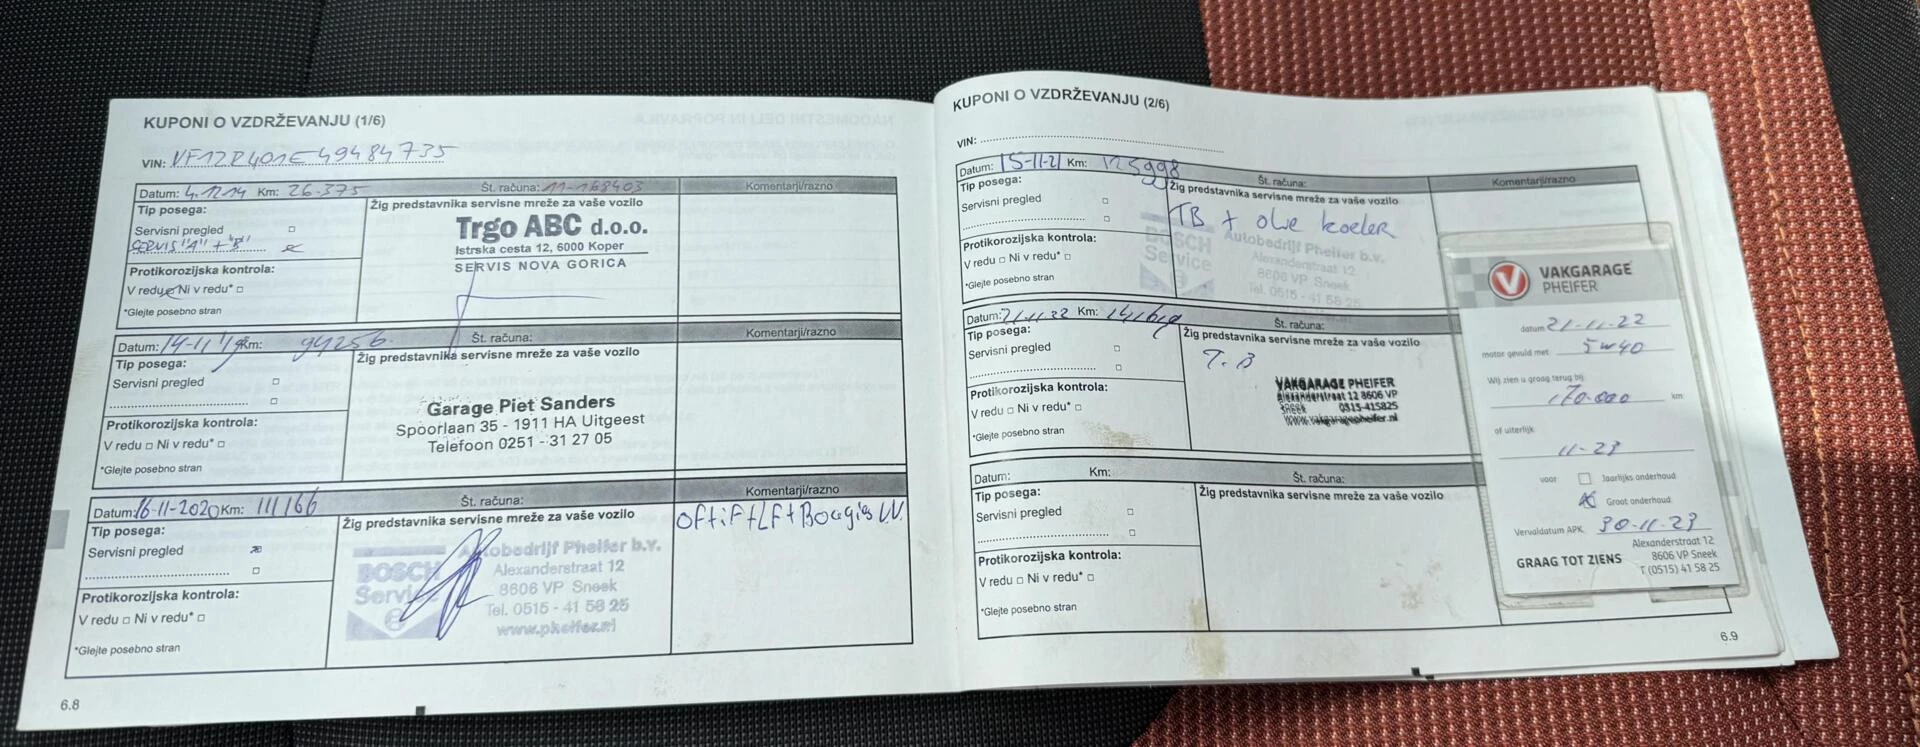 KUPONI O VZDRŽEVANJU (1/6)
VIN: VF12R401E49484735
Datum: 4.12.14 Km: 26.375 Št. računa: 11-168403 Komentarji/razno
Tip posega:
Servisni pregled
SERVIS "A" + "B"
Protikorozijska kontrola:
V redu Ni v redu*
*Glejte posebno stran
Žig predstavnika servisne mreže za vaše vozilo
Trgo ABC d.o.o.
Istrska cesta 12, 6000 Koper
SERVIS NOVA GORICA
Datum: 14-11-19 Km: 94256 Št. računa: Komentarji/razno
Tip posega:
Servisni pregled
Protikorozijska kontrola:
V redu Ni v redu*
*Glejte posebno stran
Žig predstavnika servisne mreže za vaše vozilo
Garage Piet Sanders
Spoorlaan 35 - 1911 HA Uitgeest
Telefoon 0251 - 31 27 05
Datum: 16-11-2020 Km: 111166 Št. računa: Komentarji/razno
Tip posega:
Servisni pregled
Protikorozijska kontrola:
V redu Ni v redu*
*Glejte posebno stran
Žig predstavnika servisne mreže za vaše vozilo
BOSCH
Service
Autobedrijf Pheifer b.v.
Alexanderstraat 12
8606 VP Sneek
Tel. 0515 - 41 58 25
www.pheifer.nl
of+if+Lf+Bougies V.V.
6.8
KUPONI O VZDRŽEVANJU (2/6)
VIN:
Datum: 15-11-21 Km: 125998 Št. računa: Komentarji/razno
Tip posega:
Servisni pregled
Protikorozijska kontrola:
V redu Ni v redu*
*Glejte posebno stran
Žig predstavnika servisne mreže za vaše vozilo
TB + olie koeler
BOSCH
Service
Autobedrijf Pheifer b.v.
Alexanderstraat 12
8606 VP Sneek
Tel. 0515 - 41 58 25
Datum: 21-11-22 Km: Št. računa:
Tip posega:
Servisni pregled
Protikorozijska kontrola:
V redu Ni v redu*
*Glejte posebno stran
Žig predstavnika servisne mreže za vaše vozilo
T.B
VAKGARAGE PHEIFER
Alexanderstraat 12 8606 VP
Sneek 0515-415825
www.vakgaragepheifer.nl
Datum: Km: Št. računa:
Tip posega:
Servisni pregled
Protikorozijska kontrola:
V redu Ni v redu*
*Glejte posebno stran
Žig predstavnika servisne mreže za vaše vozilo
6.9
V VAKGARAGE
PHEIFER
datum 21-11-22
motor gevuld met 5w40
Wij zien u graag terug bij
170.000 km
of uiterlijk
11-23
voor Jaarlijks onderhoud
Groot onderhoud
Vervaldatum APK 30-11-23
Alexanderstraat 12
8606 VP Sneek
GRAAG TOT ZIENS T (0515) 41 58 25